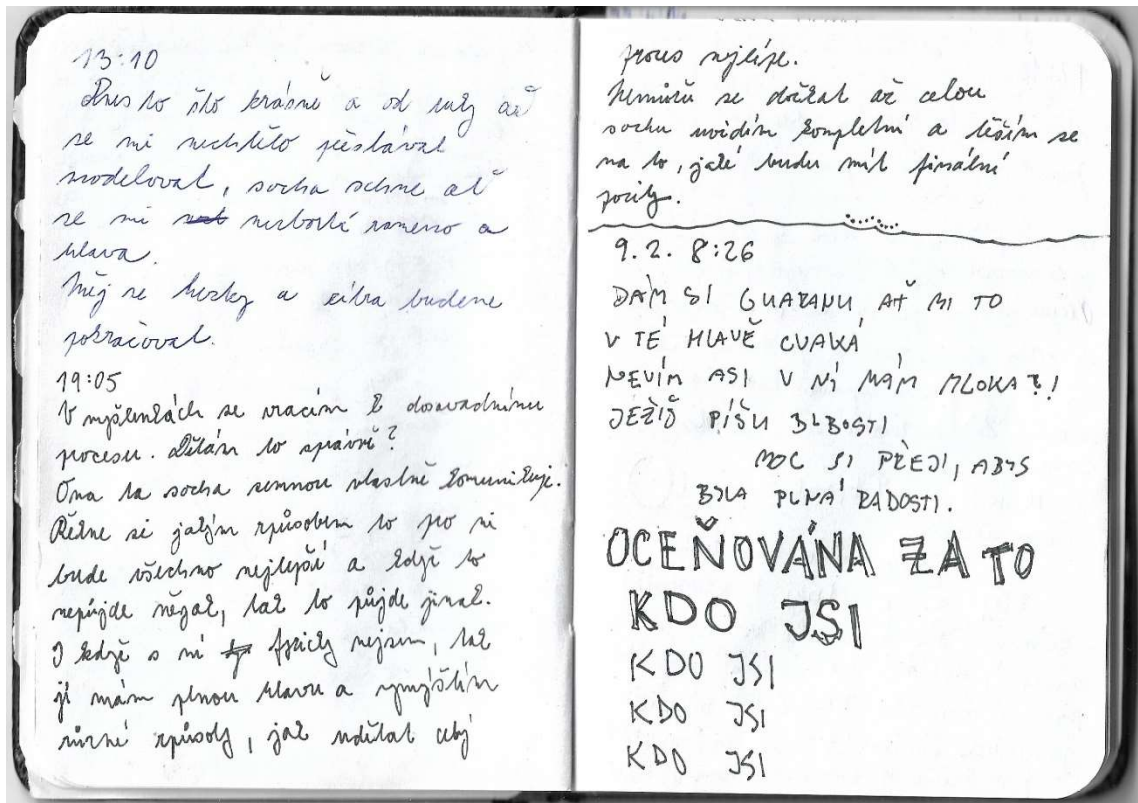 13:10
Dnes to šlo krásně a od rány až
se mi nechtělo přestávat
modelovat, socha schne ať
se mi nezbortí rameno a
hlava.
Měj se hezky a zítra budeme
pokračovat.
19:05
V myšlenkách se vracím k dosavadnímu
procesu. Dělám to správně?
Ona ta socha semnou vlastně komunikuje.
Řekne si jakým způsobem to pro ni
bude všechno nejlepší a když to
nepůjde nějak, tak to půjde jinak.
I když s ní fyzicky nejsem, tak
jí mám plnou hlavu a vymýšlím
různé způsoby, jak udělat celý
proces nejlépe.
Nemůžu se dočkat až celou
sochu uvidím kompletní a těším se
na to, jaké budu mít finální
pocity.
9.2. 8:26
DÁM SI GUARANU AŤ MI TO
V TÉ HLAVĚ CVAKÁ
NEVÍM ASI V NÍ MÁM MLOKA?!
JEŽIŠ PÍŠU BLBOSTI
MOC SI PŘEJI, ABYS
BYLA PLNÁ RADOSTI.
OCEŇOVÁNA ZA TO
KDO JSI
KDO JSI
KDO JSI
KDO JSI